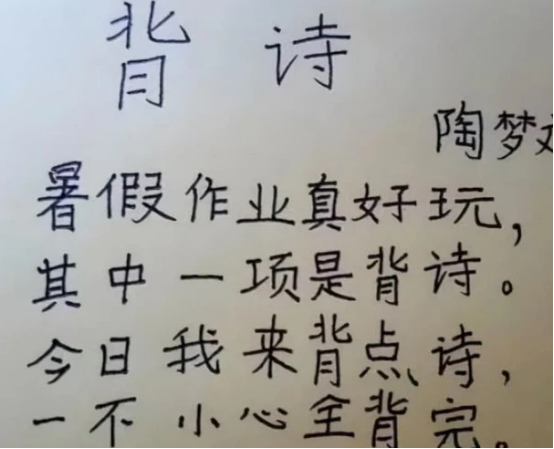 背 诗
陶梦
暑假作业真好玩，
其中一项是背诗。
今日我来背点诗，
一不小心全背完。